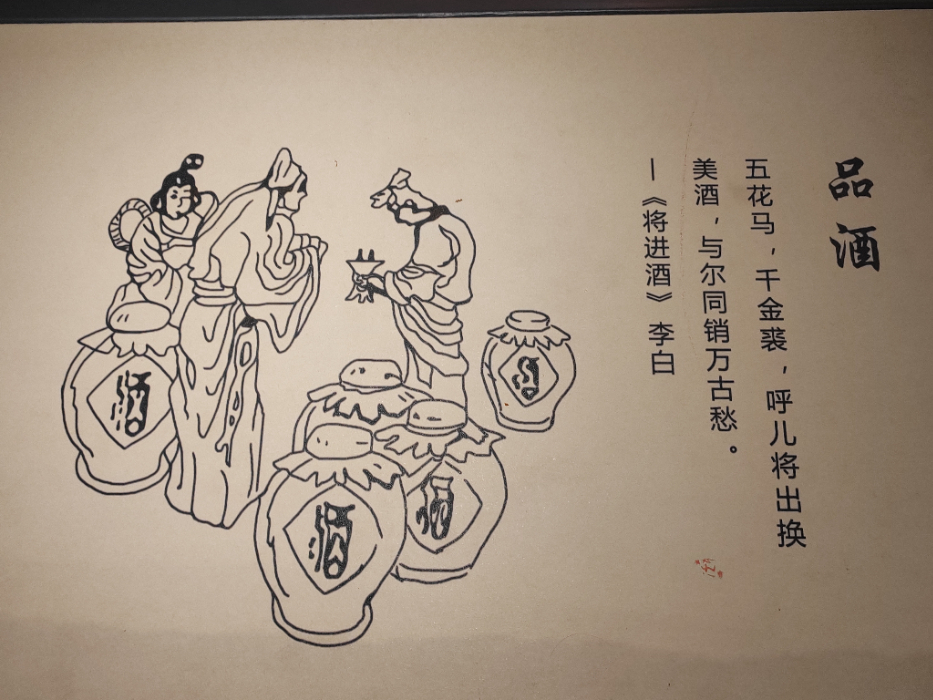 品酒
五花马，千金裘，呼儿将出换
美酒，与尔同销万古愁。
—《将进酒》 李白
酒
酒
酒
酒